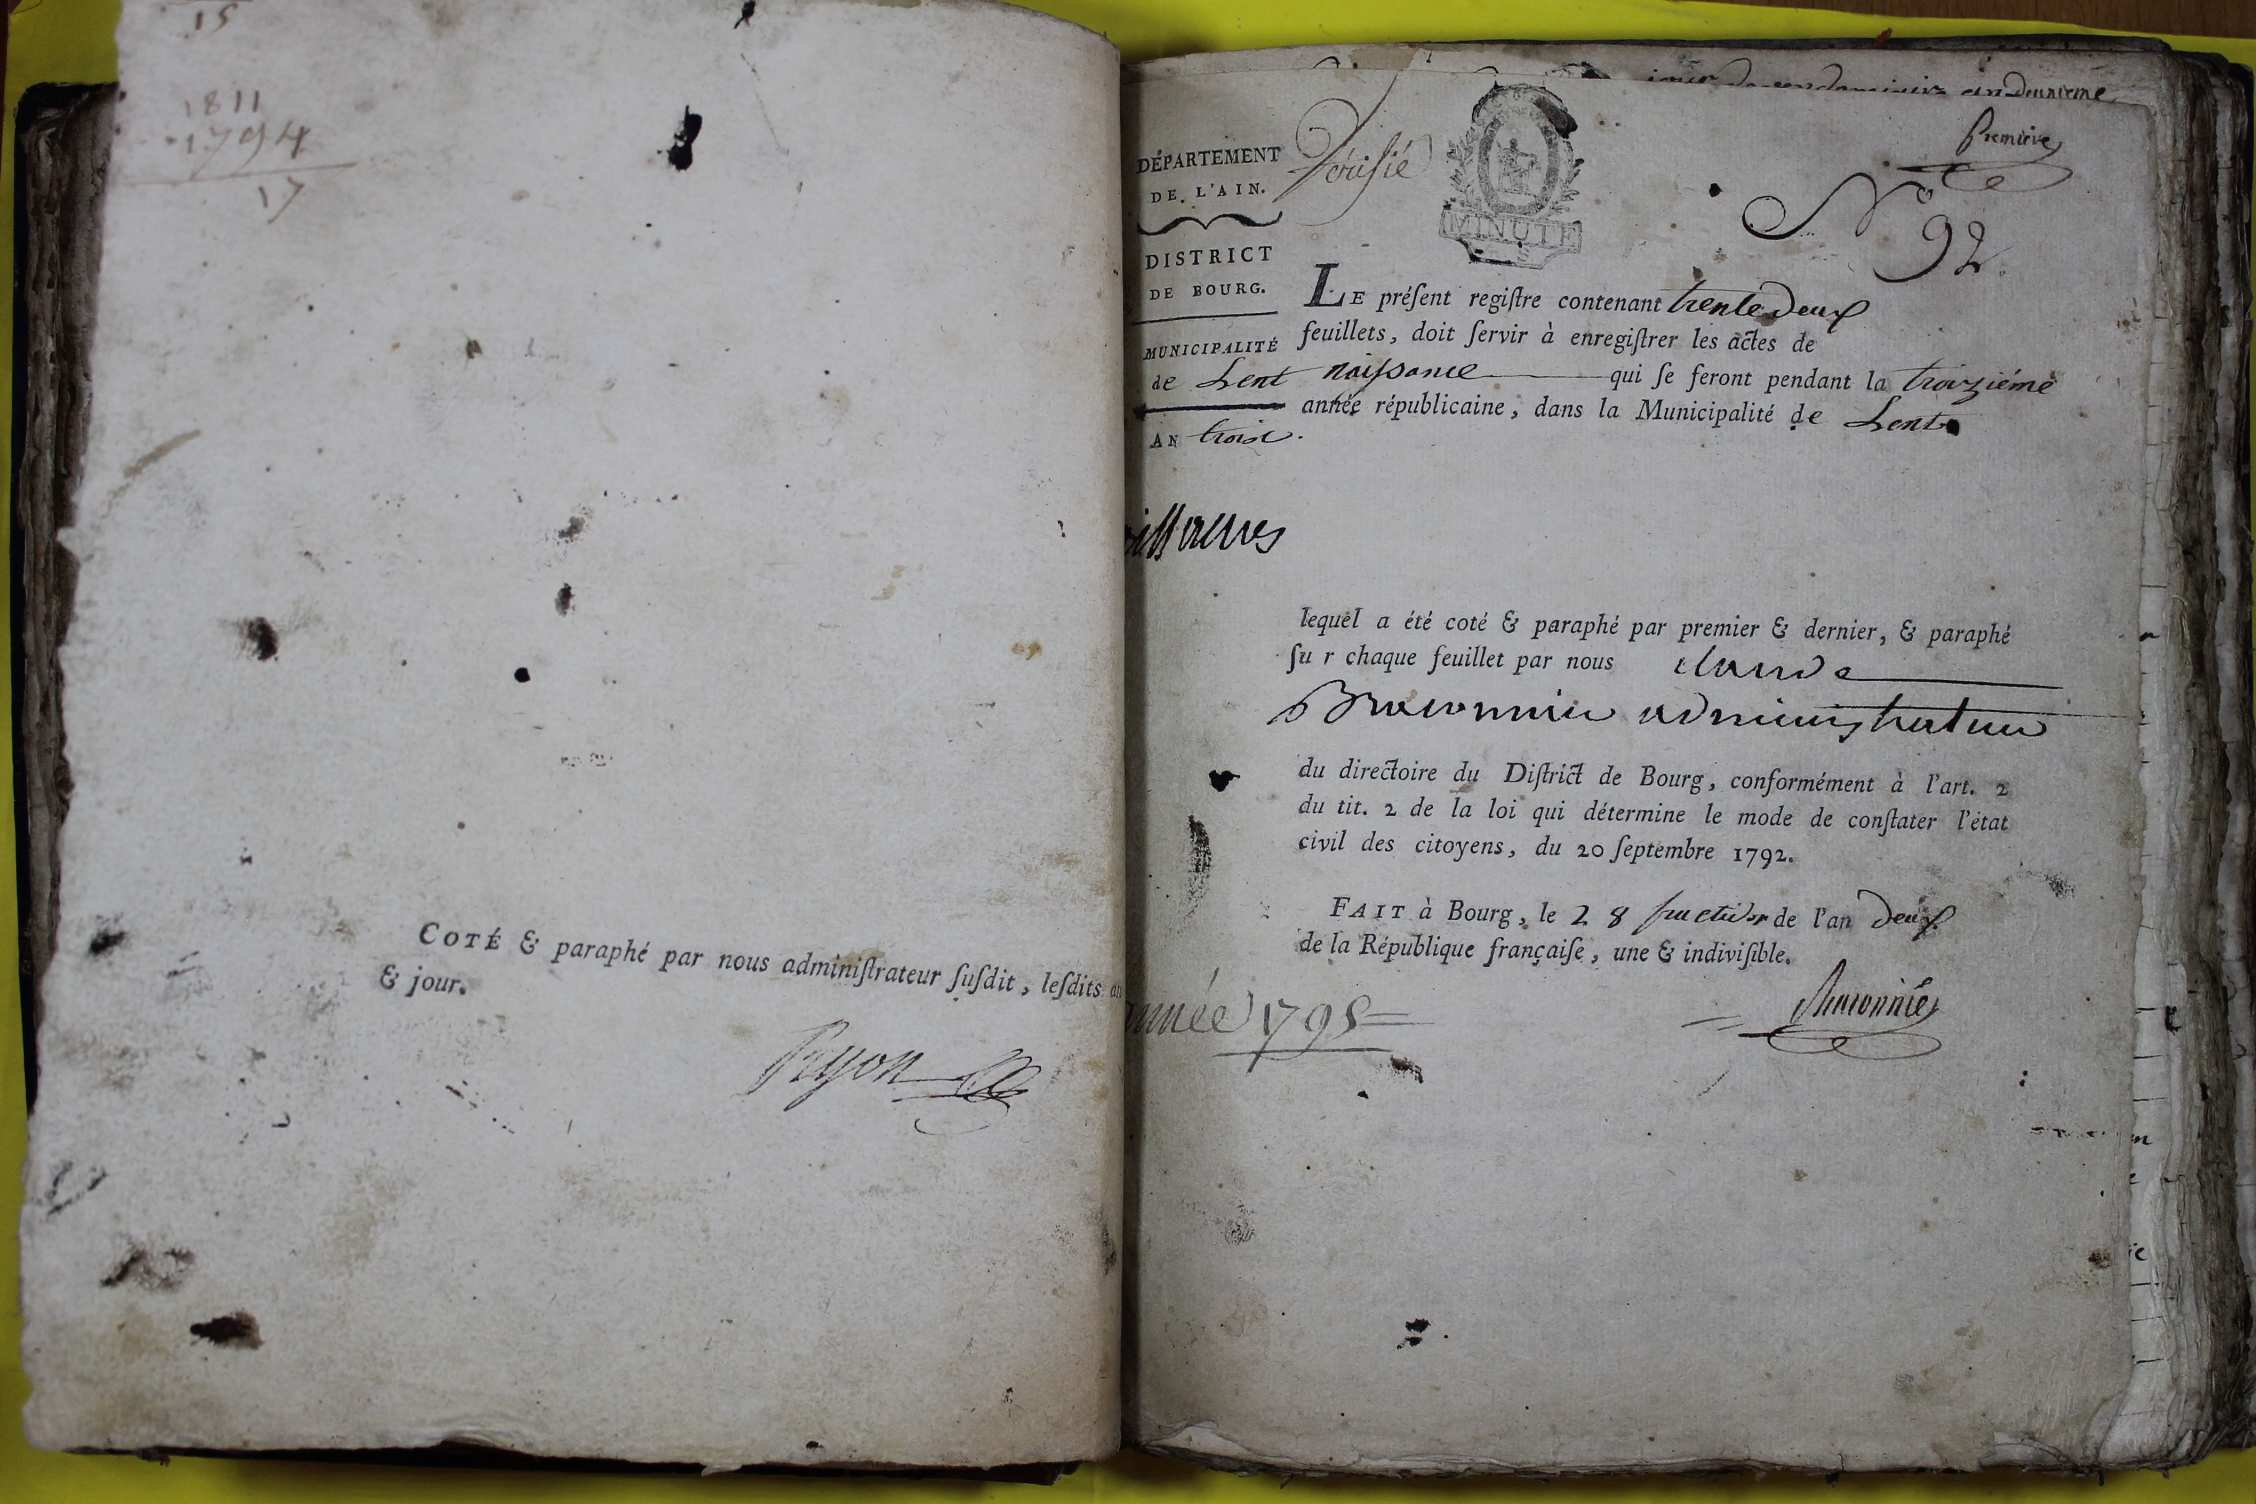 15
1811
1794
17
COTÉ & paraphé par nous adminiſtrateur ſuſdit, leſdits an
& jour.
DÉPARTEMENT
DE L'AIN.
DISTRICT
DE BOURG.
MUNICIPALITÉ
de Lent
AN troix.
Vérifié
MINUTE
premiere
N° 92.
LE préſent regiſtre contenant trente deux
feuillets, doit ſervir à enregiſtrer les actes de
naiſsance qui ſe feront pendant la troiziéme
année républicaine, dans la Municipalité de Lent
lequel a été coté & paraphé par premier & dernier, & paraphé
ſu r chaque feuillet par nous claude
Braconnier administrateur
du directoire du Diſtrict de Bourg, conformément à l'art. 2
du tit. 2 de la loi qui détermine le mode de conſtater l'état
civil des citoyens, du 20 ſeptembre 1792.
FAIT à Bourg, le 28 fructidor de l'an deux
de la République françaiſe, une & indiviſible.
année 1795
Braconnier